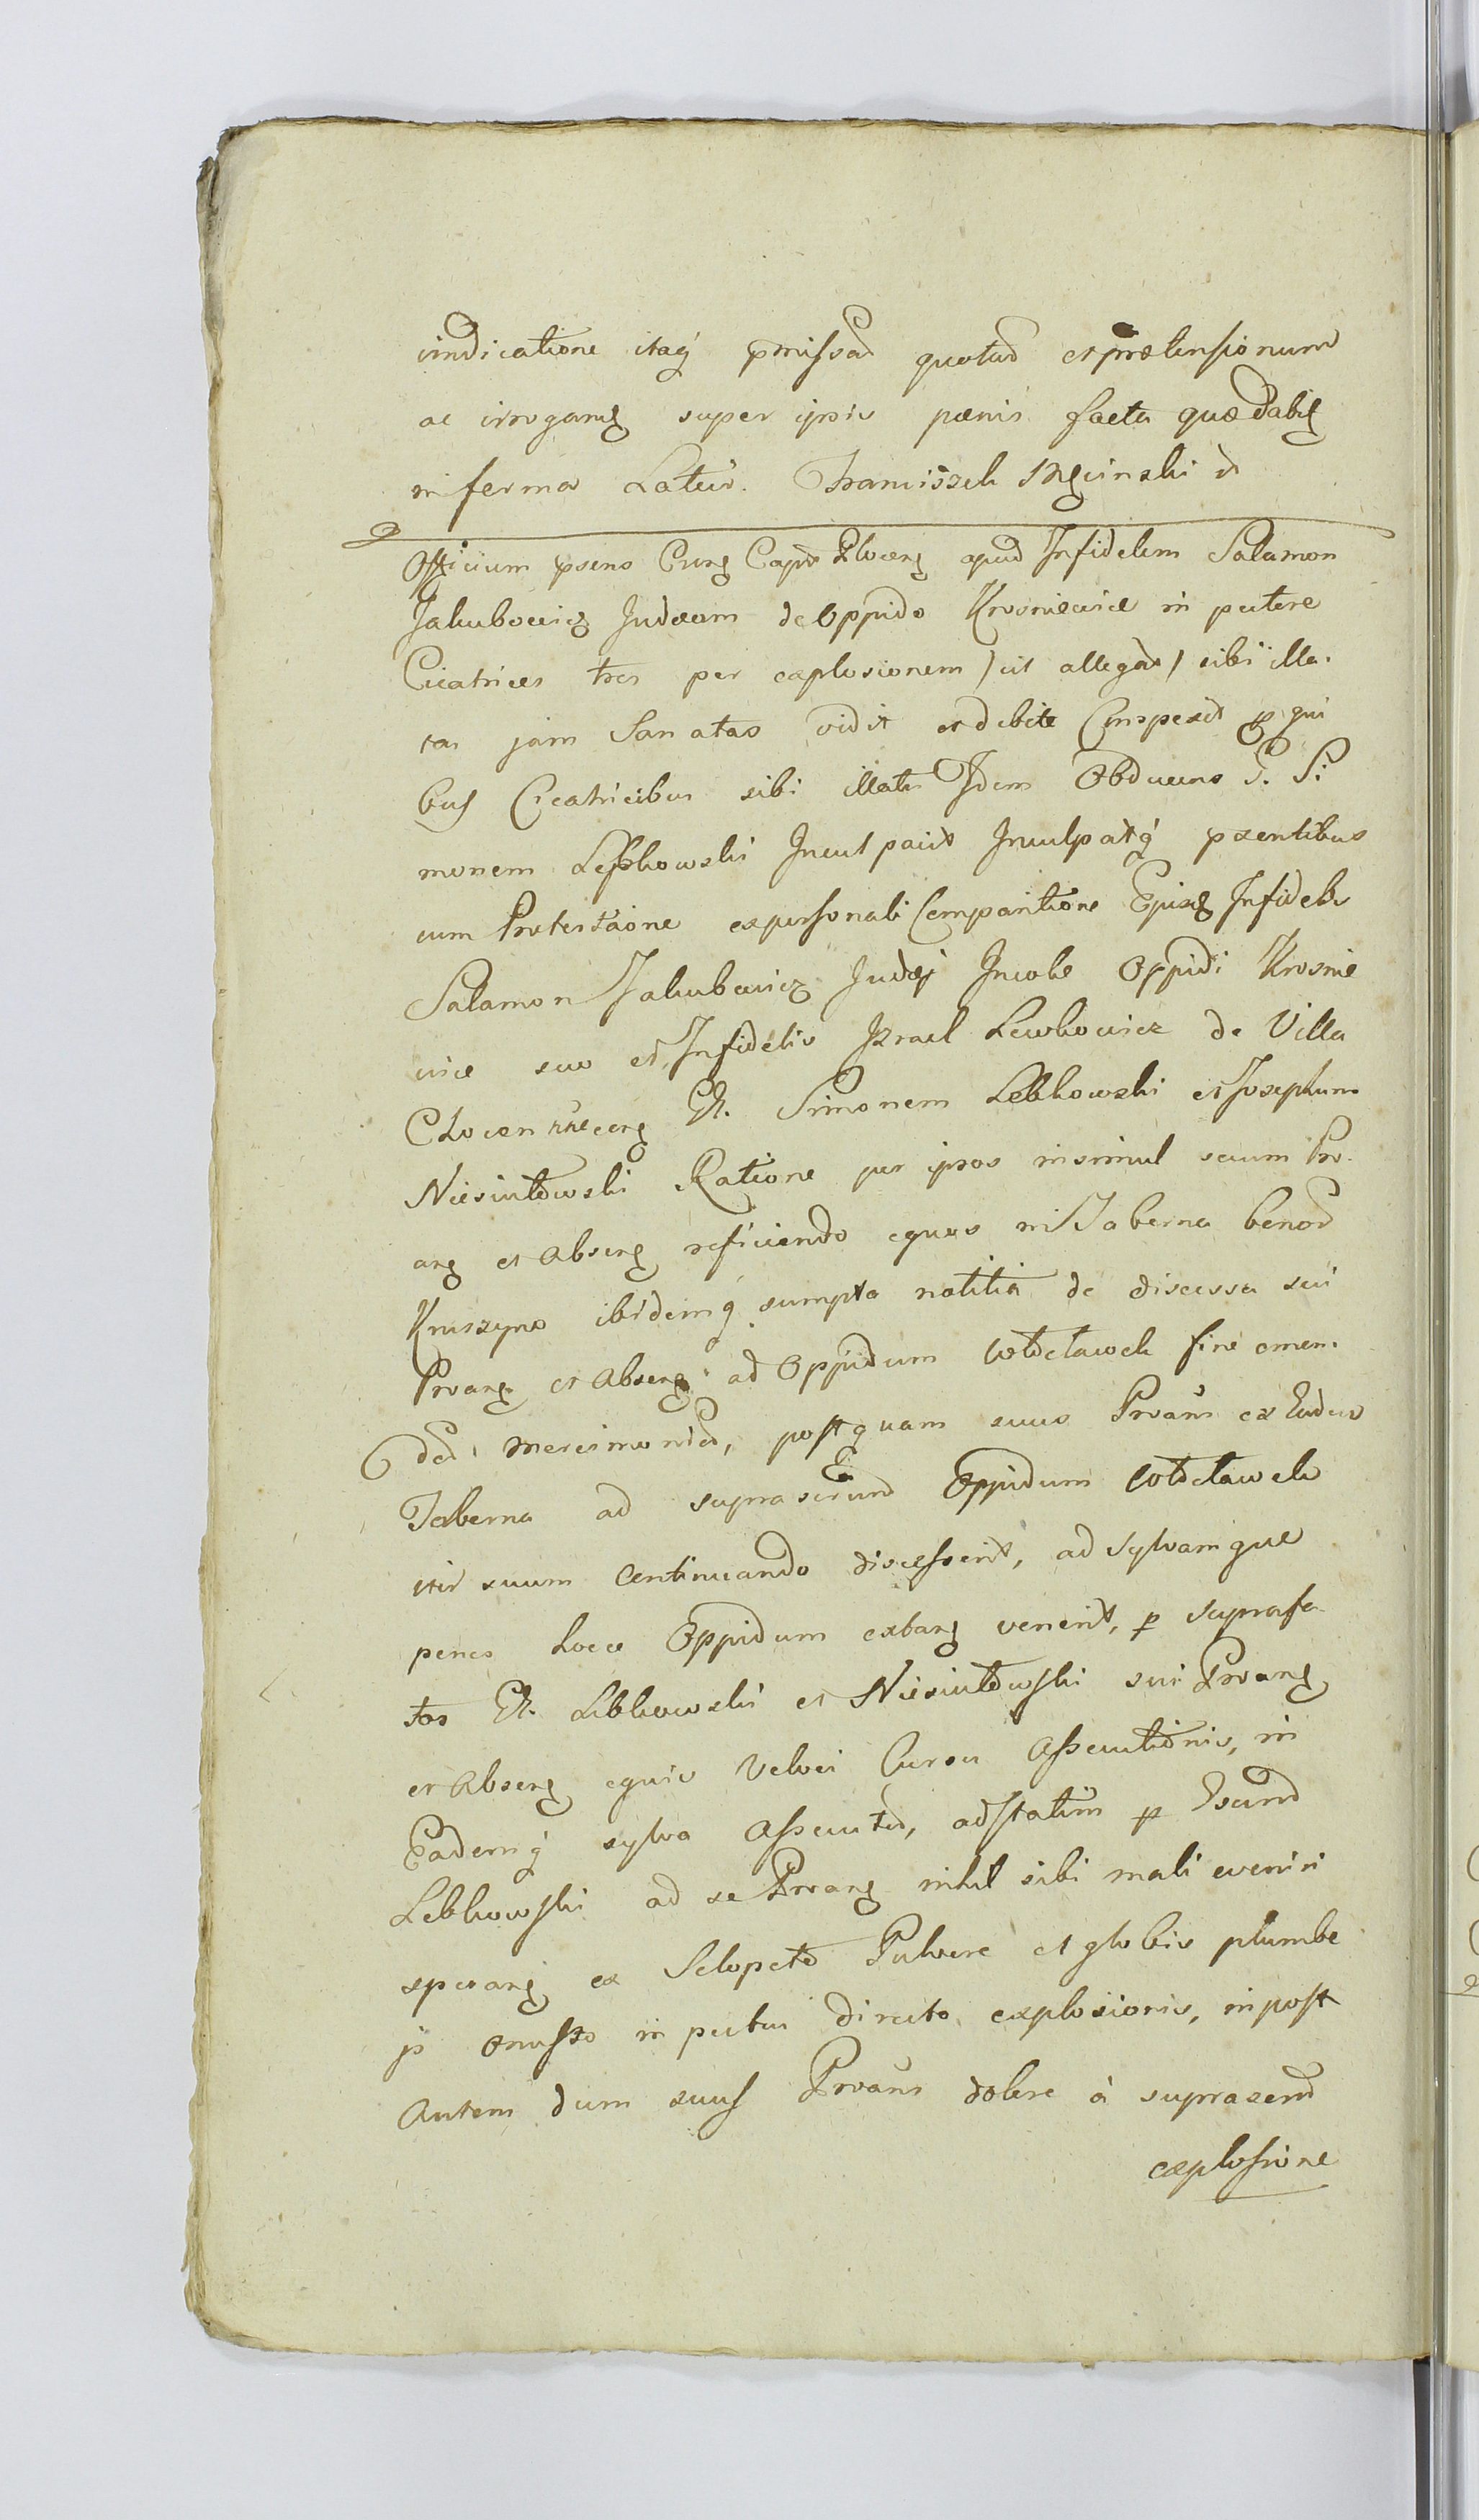 vindicatione itaq́ pmissar quotar et prætensionum
ac irrogang super ipsis pænis facta quæ dabiȩ
in forma Latius. Franciszek
Officium psens Cap Plocen apud Infidelem Salamon
Jakubowicz Judæum de Oppido Krosniewice in pectore
Cicatrices tres per explosionem /ut allegat/ sibi illa.
tas jam Sanatas vidit et debite Conspexit p qui
bus Cicatricibus sibi illatis Idem Obducens G. Si
monem Lebkowski Inculpavit Inculpatq́ psentibus
cum Protestaõne ex personali Comparitione Infidelis
Salamon Jakubowicz Judæj Incolæ Oppidi Krosnie
wice suo et Infidelis Izrael Lewkowicz de Villa
GG. Simonem Lebkowski et Josephum
Niesiułowski Ratione per ipsos insimul secum Pro.
ang et Absen reficiendo equos in Taberna bonor
Kruszyno ibidemq́ sumpta notitia de discessu sui
Proang et Absen ad Oppidum Włocławek fine emen.
dar mercimonior, postquam suus Proans ex Eadem
Taberna ad suprascrum Oppidum Włocławek
iter suum Continuando discesserit, ad Sylvamque
penes hocce Oppidum extang venerit, p suprafa
tos GG. Lebkowski et Niesiułowski sui Proang
et Absen equis Veloci Cursu Assecutionis, in
Eademq́ sylva Assecutor, adstatim p Eund
Lebkowski ad se Proang nihil sibi mali eveniri
sperang ex Sclopeto Pulvere et globis plumbe
js onusto in pectus directo explosionis, in post
Autem dum suus Proans dolere à suprasend
explosione